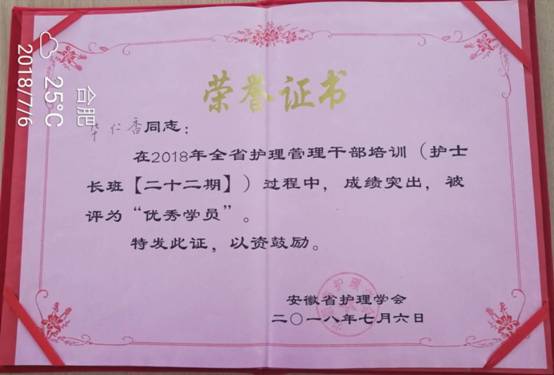 荣誉证书
仁香同志：
在2018年全省护理管理干部培训（护士
长班【二十二期】）过程中，成绩突出，被
评为“优秀学员”。
特发此证，以资鼓励。
安徽省护理学会
二〇一八年七月六日
合肥
25°C
2018/7/6